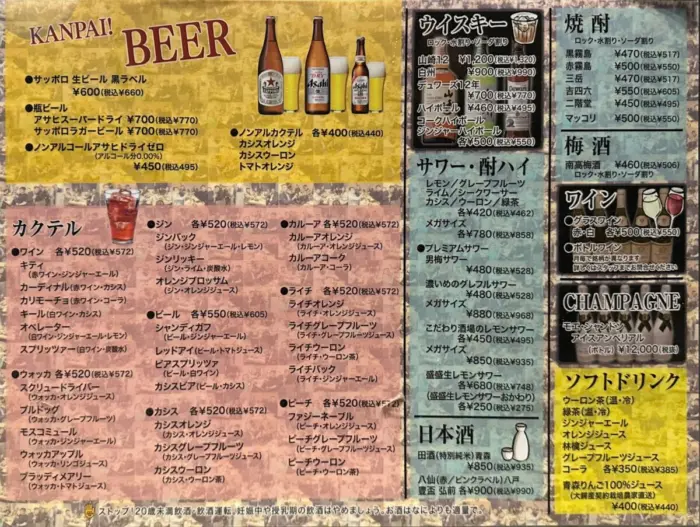 KANPAI! BEER
●サッポロ 生ビール 黒ラベル
¥600(税込¥660)
●瓶ビール
アサヒスーパードライ ¥700(税込¥770)
サッポロラガービール ¥700(税込¥770)
●ノンアルコールアサヒドライゼロ
(アルコール分0.00%)
¥450(税込¥495)
●ノンアルカクテル 各¥400(税込¥440)
カシスオレンジ
カシスウーロン
トマトオレンジ
カクテル
●ワイン 各¥520(税込¥572)
キティ
(赤ワイン・ジンジャーエール)
カーディナル(赤ワイン・カシス)
カリモーチョ(赤ワイン・コーラ)
キール(白ワイン・カシス)
オペレーター
(白ワイン・ジンジャーエール・レモン)
スプリッツァー(白ワイン・炭酸水)
●ウォッカ 各¥520(税込¥572)
スクリュードライバー
(ウォッカ・オレンジジュース)
ブルドッグ
(ウォッカ・グレープフルーツ)
モスコミュール
(ウォッカ・ジンジャーエール)
ウォッカアップル
(ウォッカ・リンゴジュース)
ブラッディメアリー
(ウォッカ・トマトジュース)
●ジン 各¥520(税込¥572)
ジンバック
(ジン・ジンジャーエール・レモン)
ジンリッキー
(ジン・ライム・炭酸水)
オレンジブロッサム
(ジン・オレンジジュース)
●ビール 各¥550(税込¥605)
シャンディガフ
(ビール・ジンジャーエール)
レッドアイ(ビール・トマトジュース)
ビアスプリッツァ
(ビール・白ワイン)
カシスビア(ビール・カシス)
●カシス 各¥520(税込¥572)
カシスオレンジ
(カシス・オレンジジュース)
カシスグレープフルーツ
(カシス・グレープフルーツジュース)
カシスウーロン
(カシス・ウーロン茶)
●カルーア 各¥520(税込¥572)
カルーアオレンジ
(カルーア・オレンジジュース)
カルーアコーク
(カルーア・コーラ)
●ライチ 各¥520(税込¥572)
ライチオレンジ
(ライチ・オレンジジュース)
ライチグレープフルーツ
(ライチ・グレープフルーツジュース)
ライチウーロン
(ライチ・ウーロン茶)
ライチバック
(ライチ・ジンジャーエール)
●ピーチ 各¥520(税込¥572)
ファジーネーブル
(ピーチ・オレンジジュース)
ピーチグレープフルーツ
(ピーチ・グレープフルーツジュース)
ピーチウーロン
(ピーチ・ウーロン茶)
ウイスキー
ロック・水割り・ソーダ割り
山崎12 ¥1,200(税込¥1,320)
白州 ¥900(税込¥990)
デュワーズ12年
¥700(税込¥770)
ハイボール ¥460(税込¥495)
コークハイボール
ジンジャーハイボール
各¥500(税込¥550)
サワー・酎ハイ
レモン／グレープフルーツ
ライム／シークワーサー
カシス／ウーロン／緑茶
各¥420(税込¥462)
メガサイズ
各¥780(税込¥858)
●プレミアムサワー
男梅サワー
¥480(税込¥528)
濃いめのグレフルサワー
¥480(税込¥528)
メガサイズ
¥880(税込¥968)
こだわり酒場のレモンサワー
各¥450(税込¥495)
メガサイズ
¥850(税込¥935)
盛盛生レモンサワー
各¥680(税込¥748)
(盛盛生レモンサワーおかわり)
各¥250(税込¥275)
日本酒
田酒(特別純米)青森
¥850(税込¥935)
八仙(赤／ピンクラベル)八戸
豊盃 弘前 各¥900(税込¥990)
焼酎
ロック・水割り・ソーダ割り
黒霧島 ¥470(税込¥517)
赤霧島 ¥500(税込¥550)
三岳 ¥470(税込¥517)
吉四六 ¥550(税込¥605)
二階堂 ¥450(税込¥495)
マッコリ ¥500(税込¥550)
梅酒
南高梅酒 ¥460(税込¥506)
ロック・水割り・ソーダ割り
ワイン
●グラスワイン
赤・白 各¥500(税込¥550)
●ボトルワイン
月毎で銘柄が異なります
詳しくはスタッフまでお問合せください
CHAMPAGNE
モエ・シャンドン
アイスアンペリアル
(ボトル) ¥12,000(税抜)
ソフトドリンク
ウーロン茶(温・冷)
緑茶(温・冷)
ジンジャーエール
オレンジジュース
林檎ジュース
グレープフルーツジュース
コーラ 各¥350(税込¥385)
青森りんご100%ジュース
(大鰐産契約栽培農家直送)
¥400(税込¥440)
ストップ！20歳未満飲酒・飲酒運転。妊娠中や授乳期の飲酒はやめましょう。お酒はなによりも適量で。